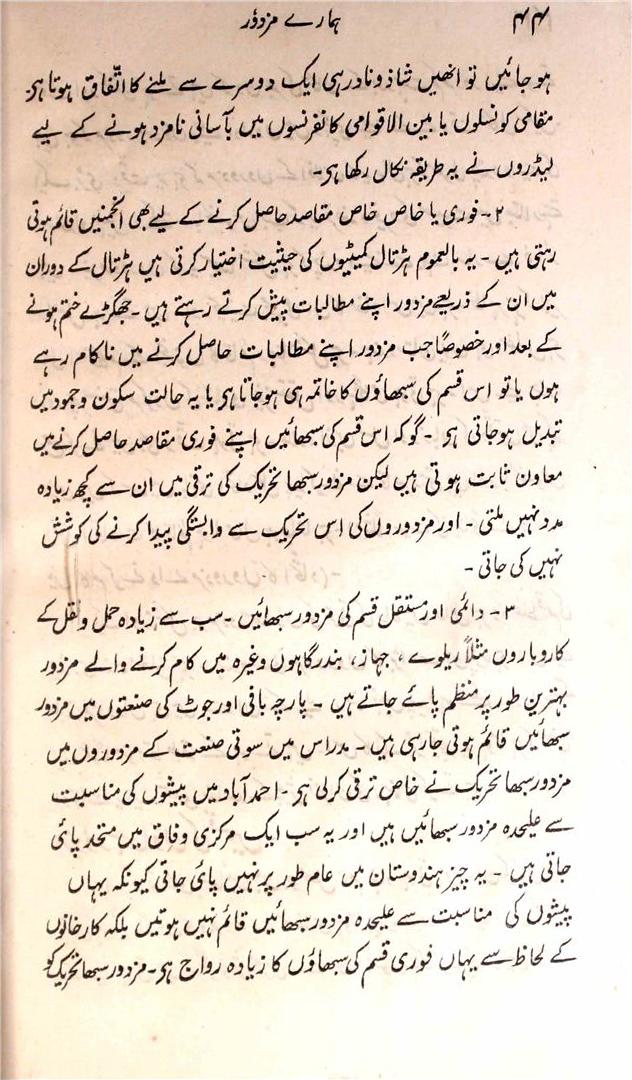 ۴۴ ہمارے مزدوٗر
ہو جائیں تو انھیں شاذ و نادر ہی ایک دوسرے سے ملنے کا اتّفاق ہوتا ہی۔
مقامی کونسلوں یا بین الاقوامی کانفرنسوں میں بآسانی نامزد ہونے کے لیے
لیڈروں نے یہ طریقہ نکال رکھا ہی۔
۲۔ فوری یا خاص خاص مقاصد حاصل کرنے کے لیے بھی انجمنیں قائم ہوتی
رہتی ہیں ۔ یہ بالعموم ہڑتال کمیٹیوں کی حیثیت اختیار کرتی ہیں ہڑتال کے دوران
میں ان کے ذریعے مزدور اپنے مطالبات پیش کرتے رہتے ہیں ۔ جھگڑے ختم ہونے
کے بعد اور خصوصًا جب مزدور اپنے مطالبات حاصل کرنے میں ناکام رہے
ہوں یا تو اس قسم کی سبھاؤں کا خاتمہ ہی ہو جاتا ہی یا یہ حالت سکون و جمود میں
تبدیل ہو جاتی ہی ۔ گو کہ اس قسم کی سبھائیں اپنے فوری مقاصد حاصل کرنے میں
معاون ثابت ہوتی ہیں لیکن مزدور سبھا تحریک کی ترقی میں ان سے کچھ زیادہ
مدد نہیں ملتی ۔ اور مزدوروں کی اس تحریک سے وابستگی پیدا کرنے کی کوشش
نہیں کی جاتی ۔
۳ ۔ دائمی اور مستقل قسم کی مزدور سبھائیں ۔ سب سے زیادہ حمل و نقل کے
کاروباروں مثلاً ریلوے ، جہاز، بندرگاہوں وغیرہ میں کام کرنے والے مزدور
بہترین طور پر منظم پائے جاتے ہیں ۔ پارچہ بافی اور جوٹ کی صنعتوں میں مزدور
سبھائیں قائم ہوتی جا رہی ہیں ۔ مدراس میں سوتی صنعت کے مزدوروں میں
مزدور سبھا تحریک نے خاص ترقی کر لی ہی ۔ احمد آباد میں پیشوں کی مناسبت
سے علیحدہ مزدور سبھائیں ہیں اور یہ سب ایک مرکزی وفاق میں متحد پائی
جاتی ہیں ۔ یہ چیز ہندوستان میں عام طور پر نہیں پائی جاتی کیونکہ یہاں
پیشوں کی مناسبت سے علیحدہ مزدور سبھائیں قائم نہیں ہوتیں بلکہ کارخانوں
کے لحاظ سے یہاں فوری قسم کی سبھاؤں کا زیادہ رواج ہی ۔ مزدور سبھا تحریک کو